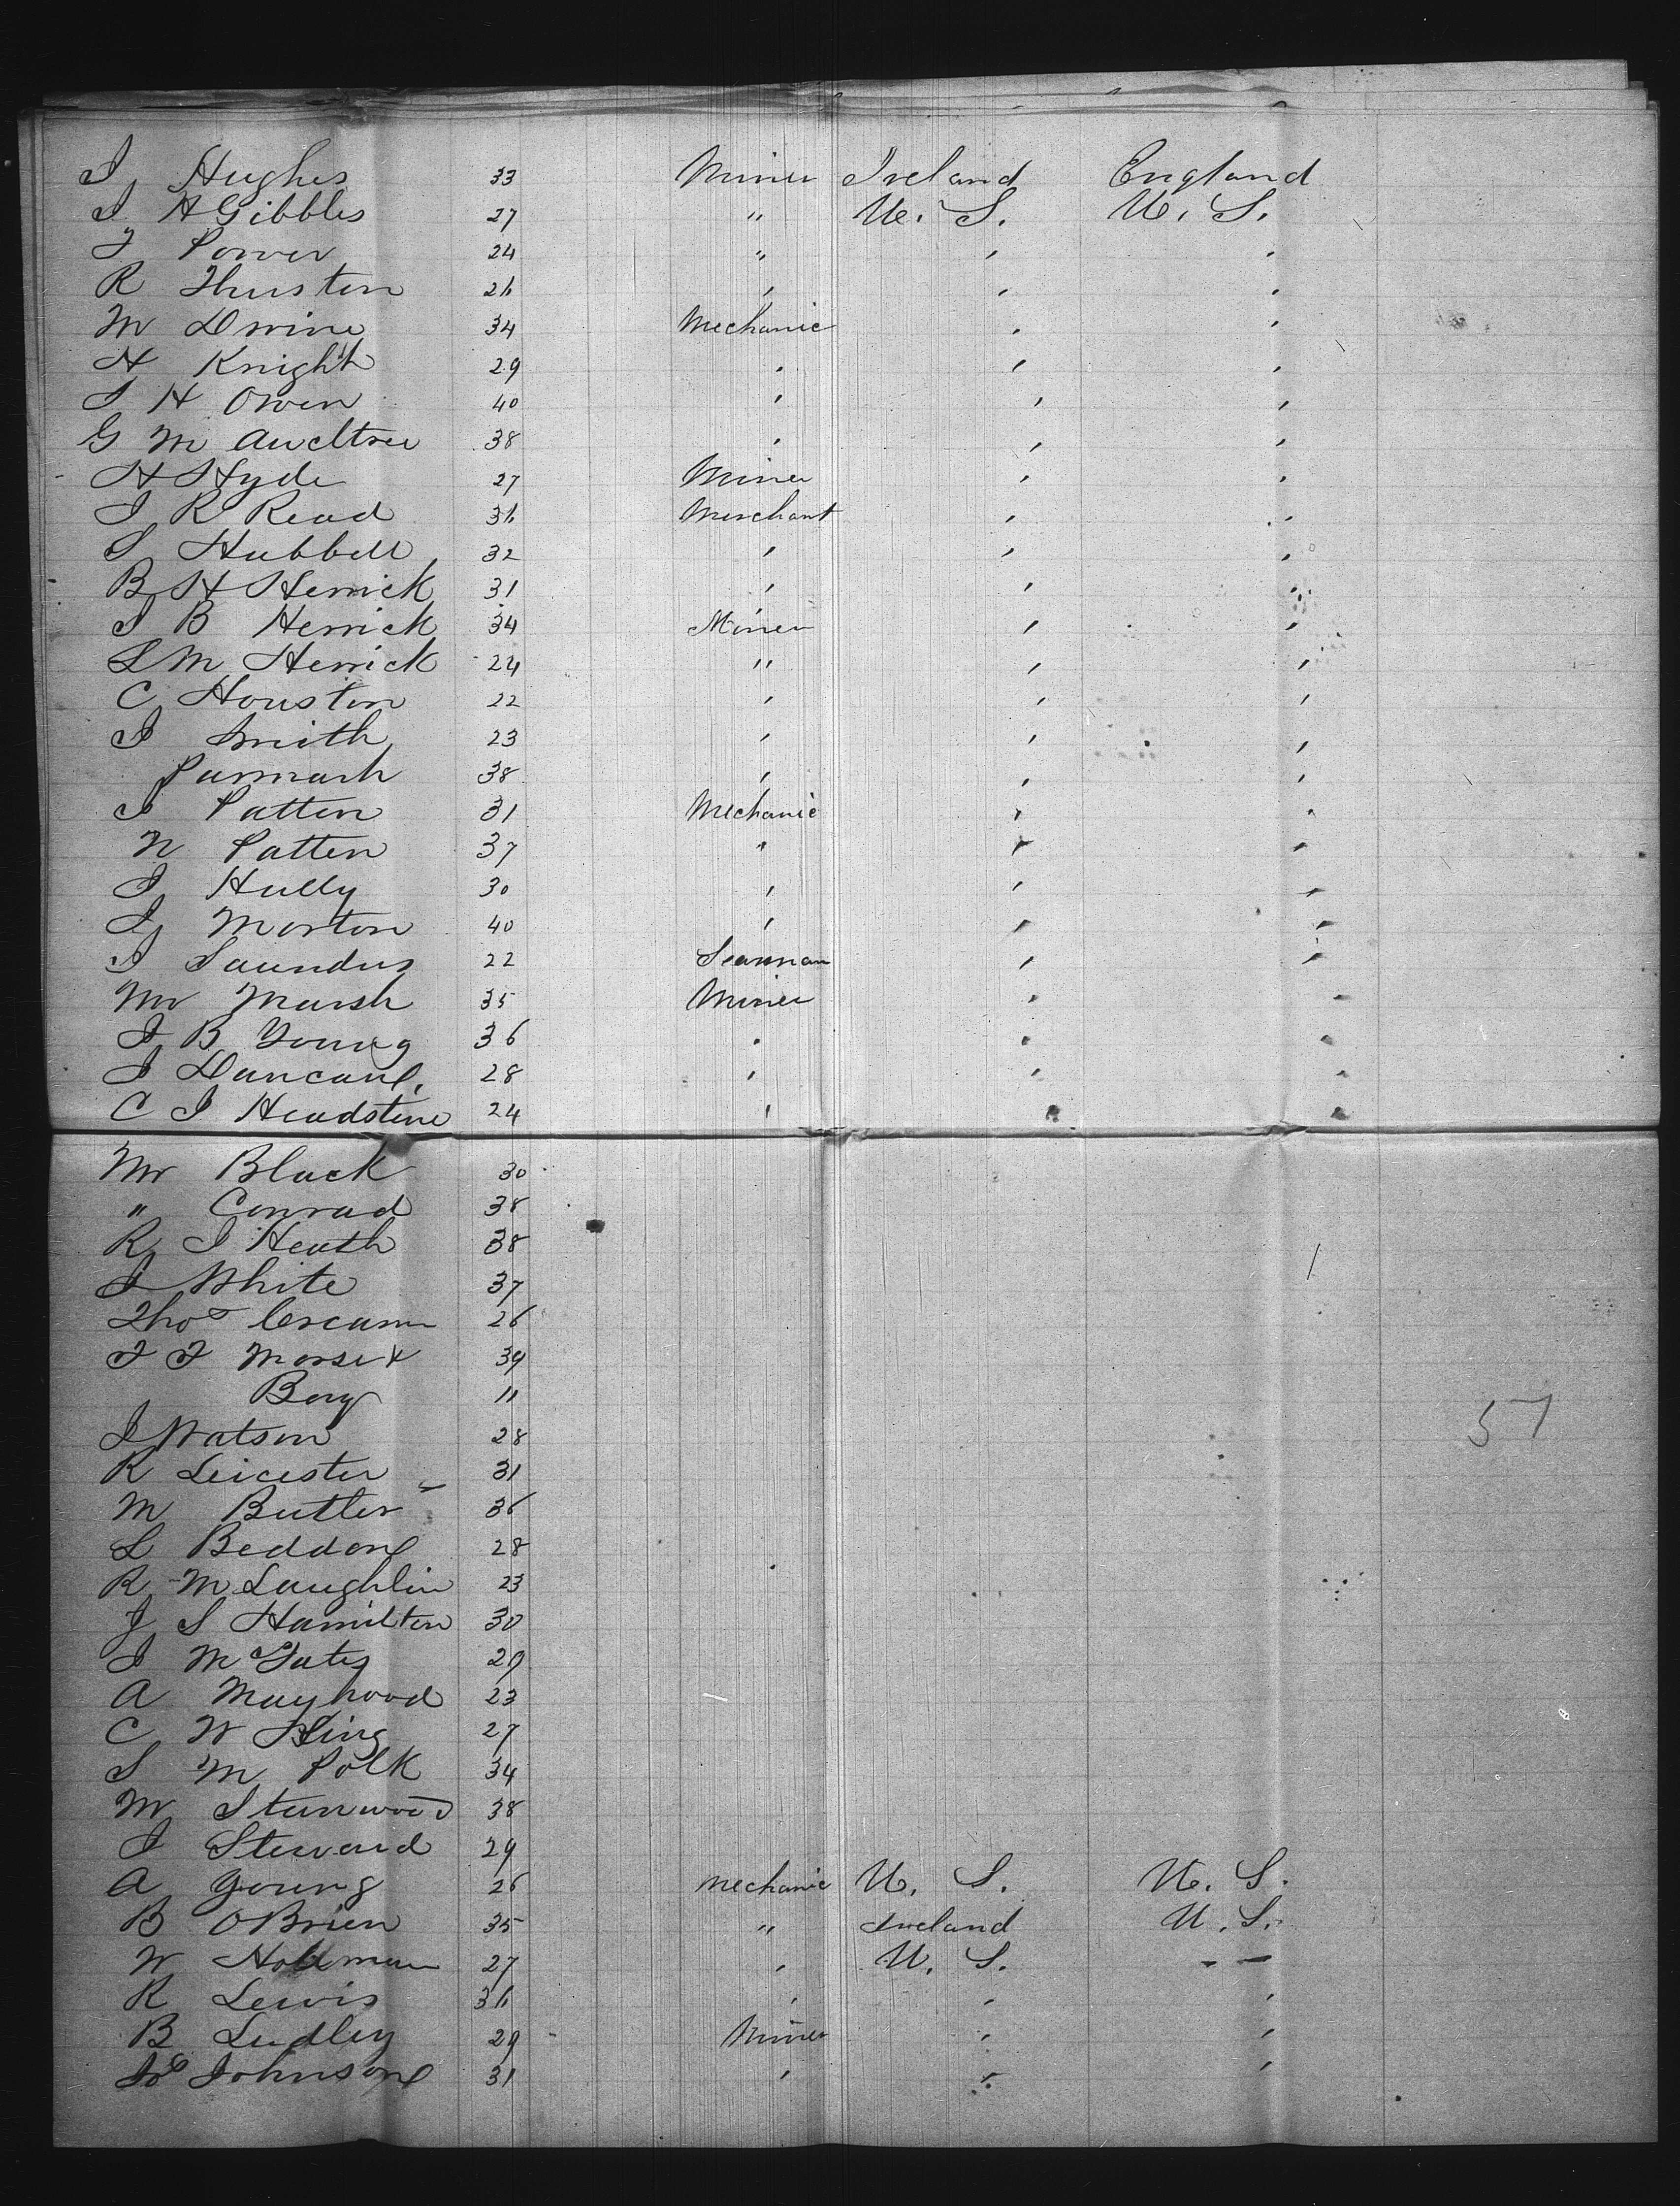 J Hughes 33 Miner Ireland England
J H Gibbles 27 " U. S. U. S.
J Power 24 " " "
R Thurston 26 " " "
M Divine 34 Mechanic " "
H Knight 29 " " "
J H Owen 40 " " "
G M 38 " " "
H Hyde 27 Miner " "
J R Read 36 Merchant " "
S Hubbell 32 " " "
B H Herrick 31 " " "
J B Herrick 34 Miner " "
L M Herrick 24 " " "
C Houston 22 " " "
J Smith 23 " " "
38 " " "
J Patten 31 Mechanic " "
N Patten 37 " " "
J Hully 30 " " "
J Morton 40 " " "
J Saunders 22 Seaman " "
Mr Marsh 35 Miner " "
J B Young 36 " " "
J Duncan 28 " " "
C J Headstine 24 " " "
Mr Black 30
" Conrad 38
R J Heath 38
J White 37
Thos Cream 26
F F Morse & 39
Boy 11
J Watson 28
R Leicester 31
M Butler 36
L Beddone 28
R McLaughlin 23
J S Hamilton 30
J McYates 29
A Mayhood 23
C W King 27
S M Polk 34
M Stanwood 38
J Steward 29
A Young 26 Mechanic U. S. U. S.
B OBrien 35 " Ireland U. S.
W Holeman 27 " U. S. - -
R Lewis 36 " " "
B Ludley 29 Miner " "
Johnson 31 " " "
57